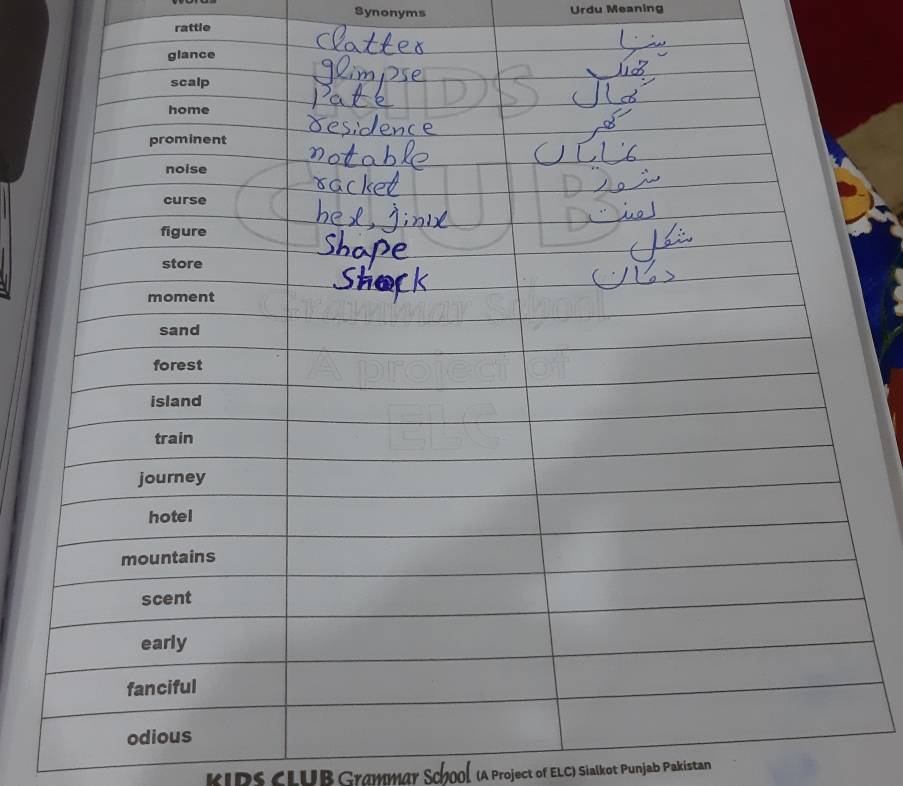 Synonyms Urdu Meaning
rattle clatter
glance glimpse
scalp Pate کھال
home residence گھر
prominent notable
noise racket شور
curse hex, jinix لعنت
figure Shape شکل
store دکان
moment
sand
forest
island
train
journey
hotel
mountains
scent
early
fanciful
odious
KIDS CLUB
Grammar School
A project of
ELC
KIDS CLUB Grammar School (A Project of ELC) Sialkot Punjab Pakistan